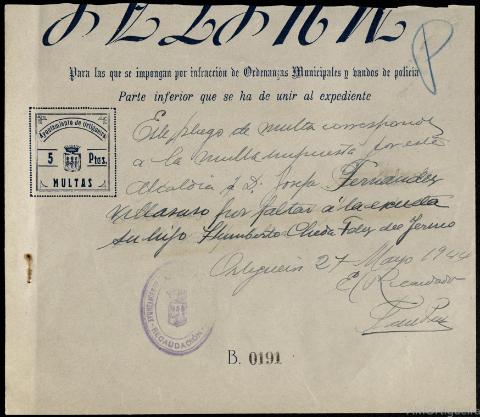 Para las que se impongan por infracción de Ordenanzas Municipales y bandos de policía
Parte inferior que se ha de unir al expediente
Ayuntamiento de Ortigueira
5 Ptas.
MULTAS
Este pliego de multa corresponde
a la multa impuesta por esta
Alcaldía á D. Josefa Fernandez
Villasuso por faltar á la escuela
su hijo Humberto
Ortigueira 27 Mayo 1944
El Recaudador
RECAUDACIÓN
B. 0191